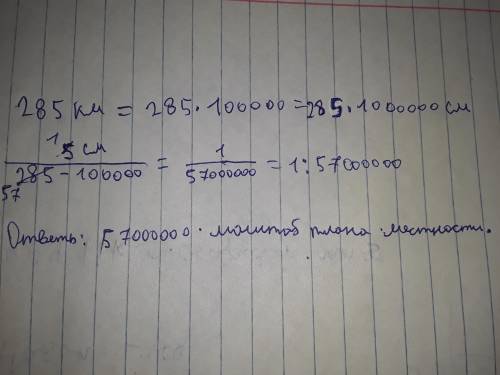 285 км = 285 · 100000 = 285 · 1000000 см
1 5 см
57 285 - 100000 = 1 / 57000000 = 1 : 57000000
Ответь: 57000000 · маштоб плана · местности.